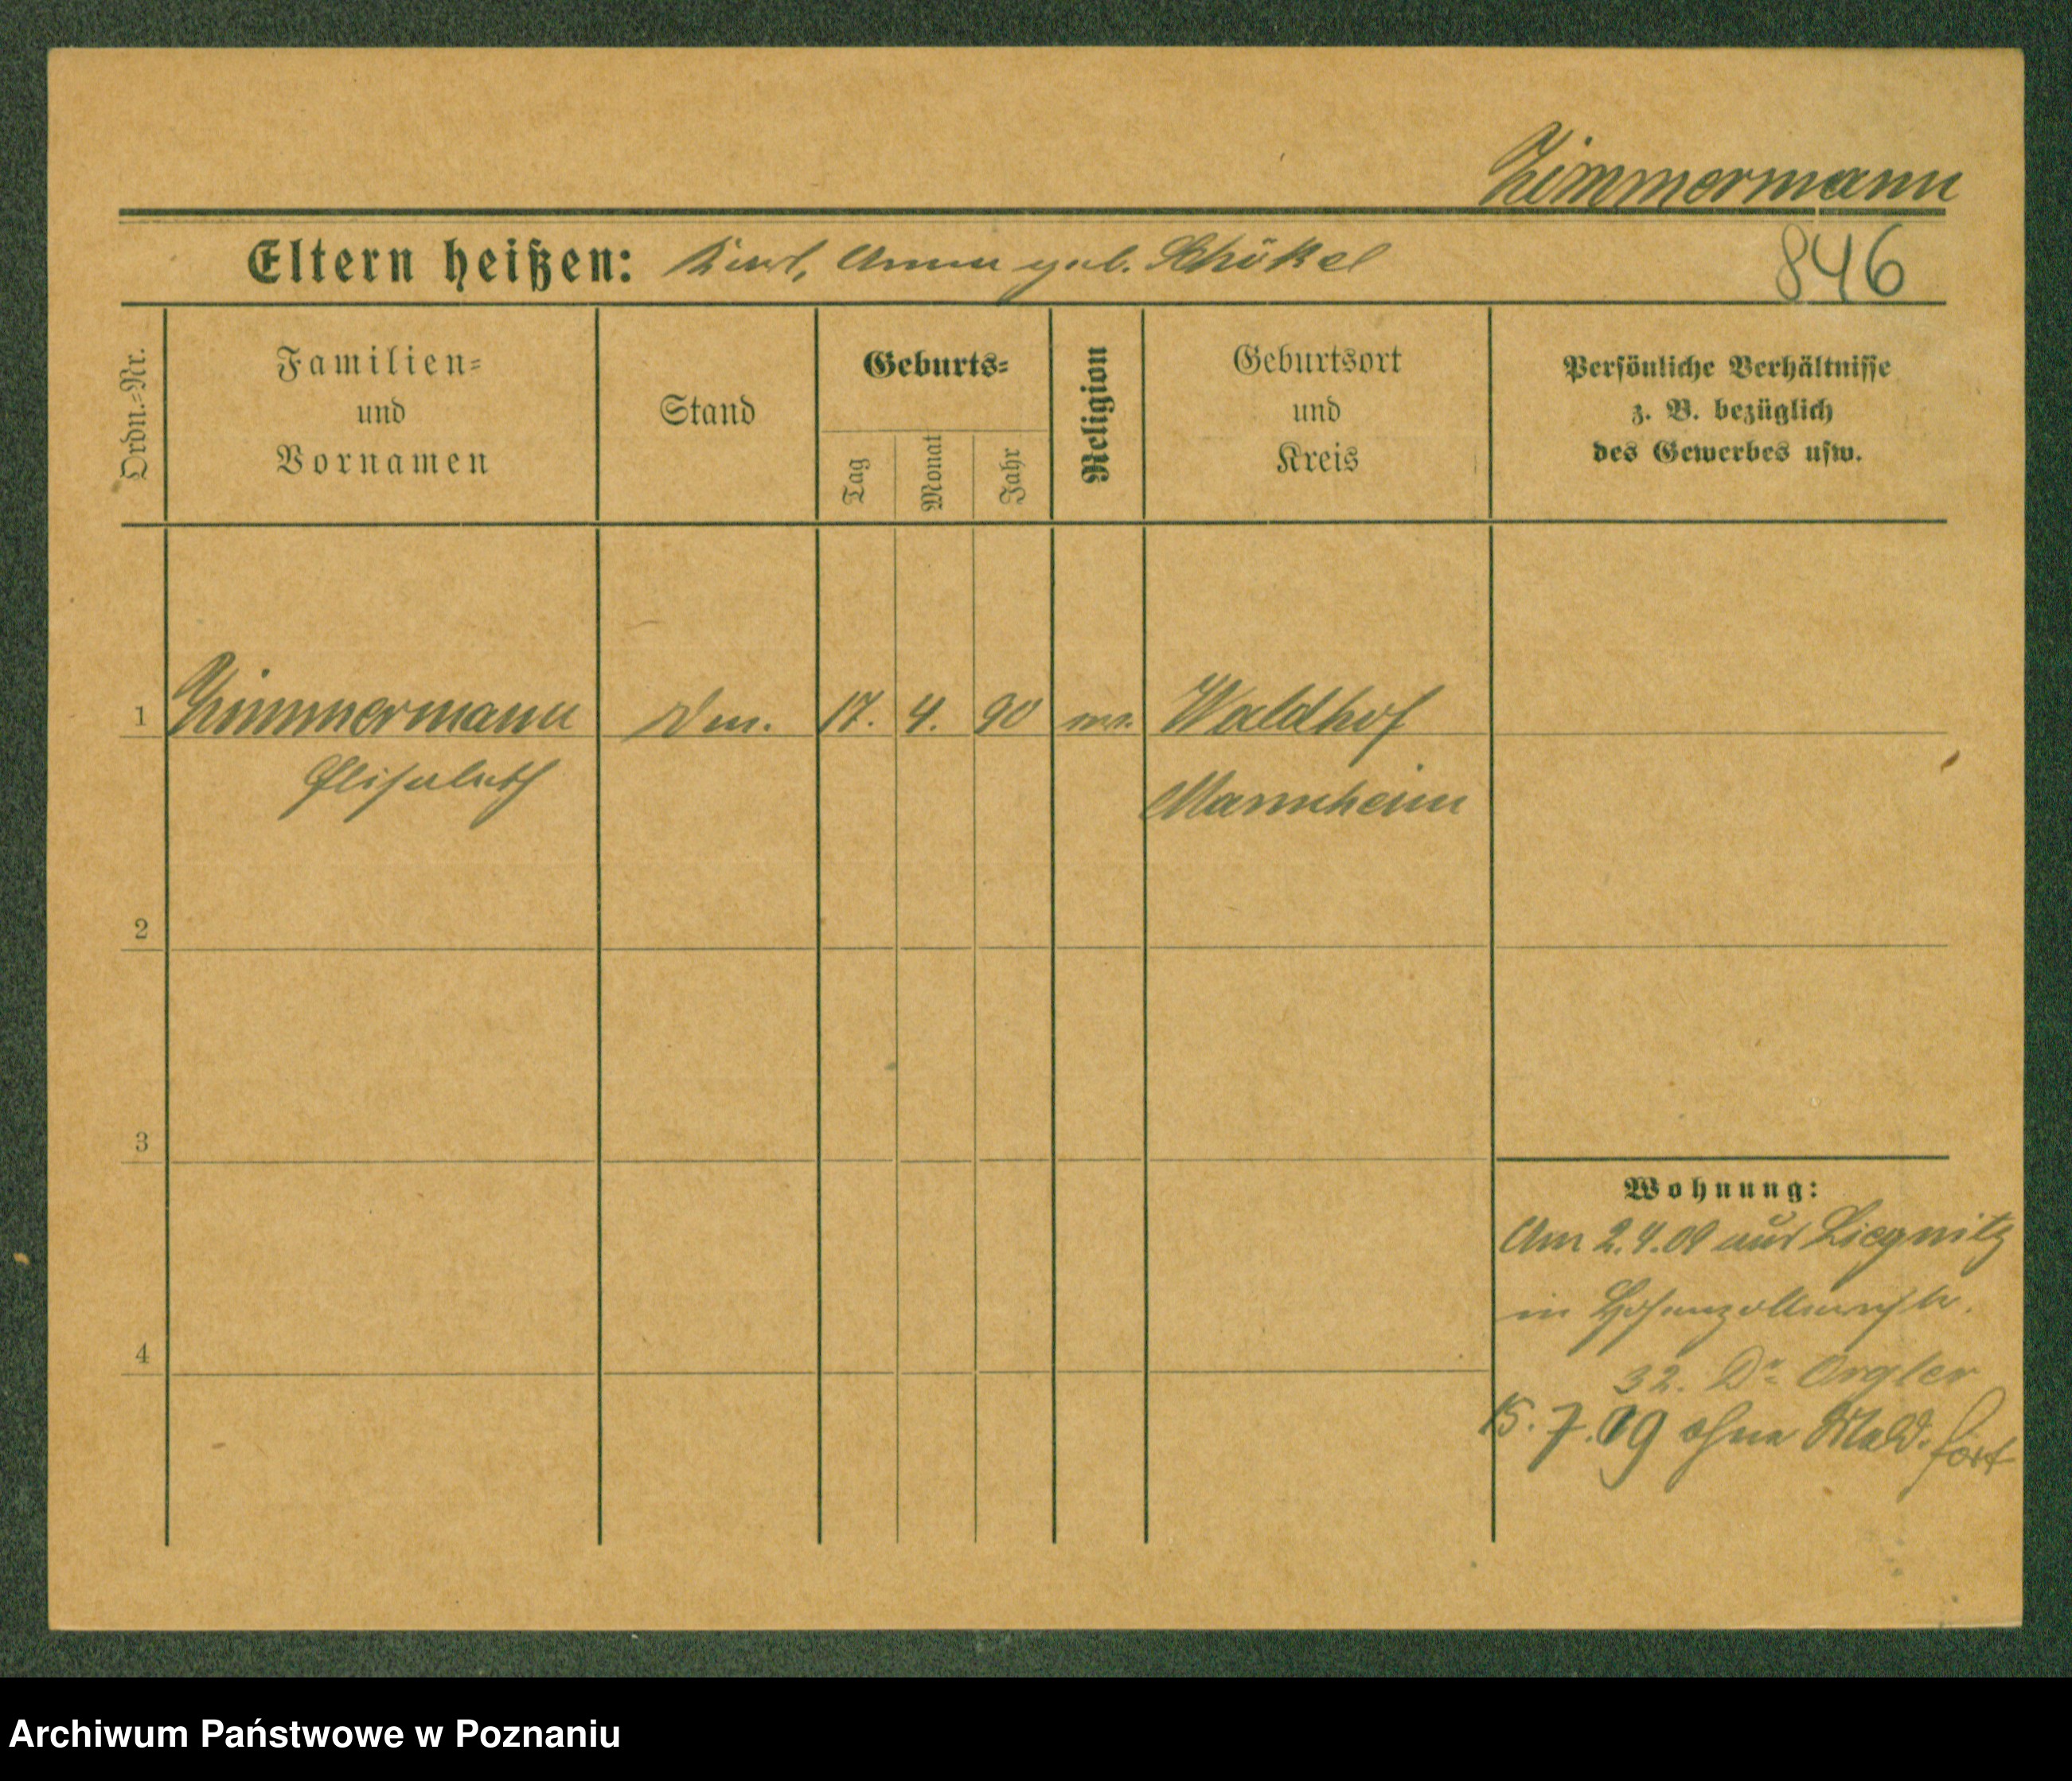 Zimmermann
Eltern heißen: Karl, Anna geb. Schökel
846
Ordn.-Nr.
Familien-
und
Vornamen
Stand
Geburts-
Tag
Monat
Jahr
Religion
Geburtsort
und
Kreis
Persönliche Verhältnisse
z. B. bezüglich
des Gewerbes usw.
1 Zimmermann 17. 4. 90 Waldhof
Elisabeth Mannheim
2
3
4
Wohnung:
Am 2.4.09 aus Liegnitz
in Hohenzollernstr.
32. Dr Orgler
15.7.09 ohne Meld. fort
Archiwum Państwowe w Poznaniu